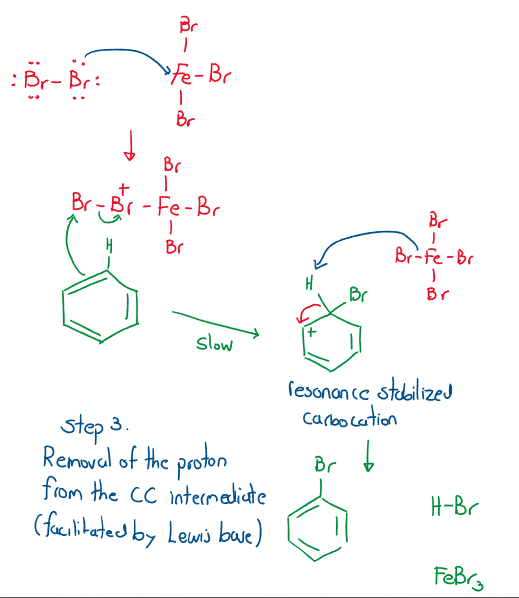 Br
:Br-Br: Fe-Br
Br
Br
+
Br-Br-Fe-Br
Br
H
Br
Br-Fe-Br
Br
H
Br
+
slow
resonance stabilized
carbocation
Step 3.
Removal of the proton
from the CC intermediate
(facilitated by Lewis base)
Br
H-Br
FeBr3